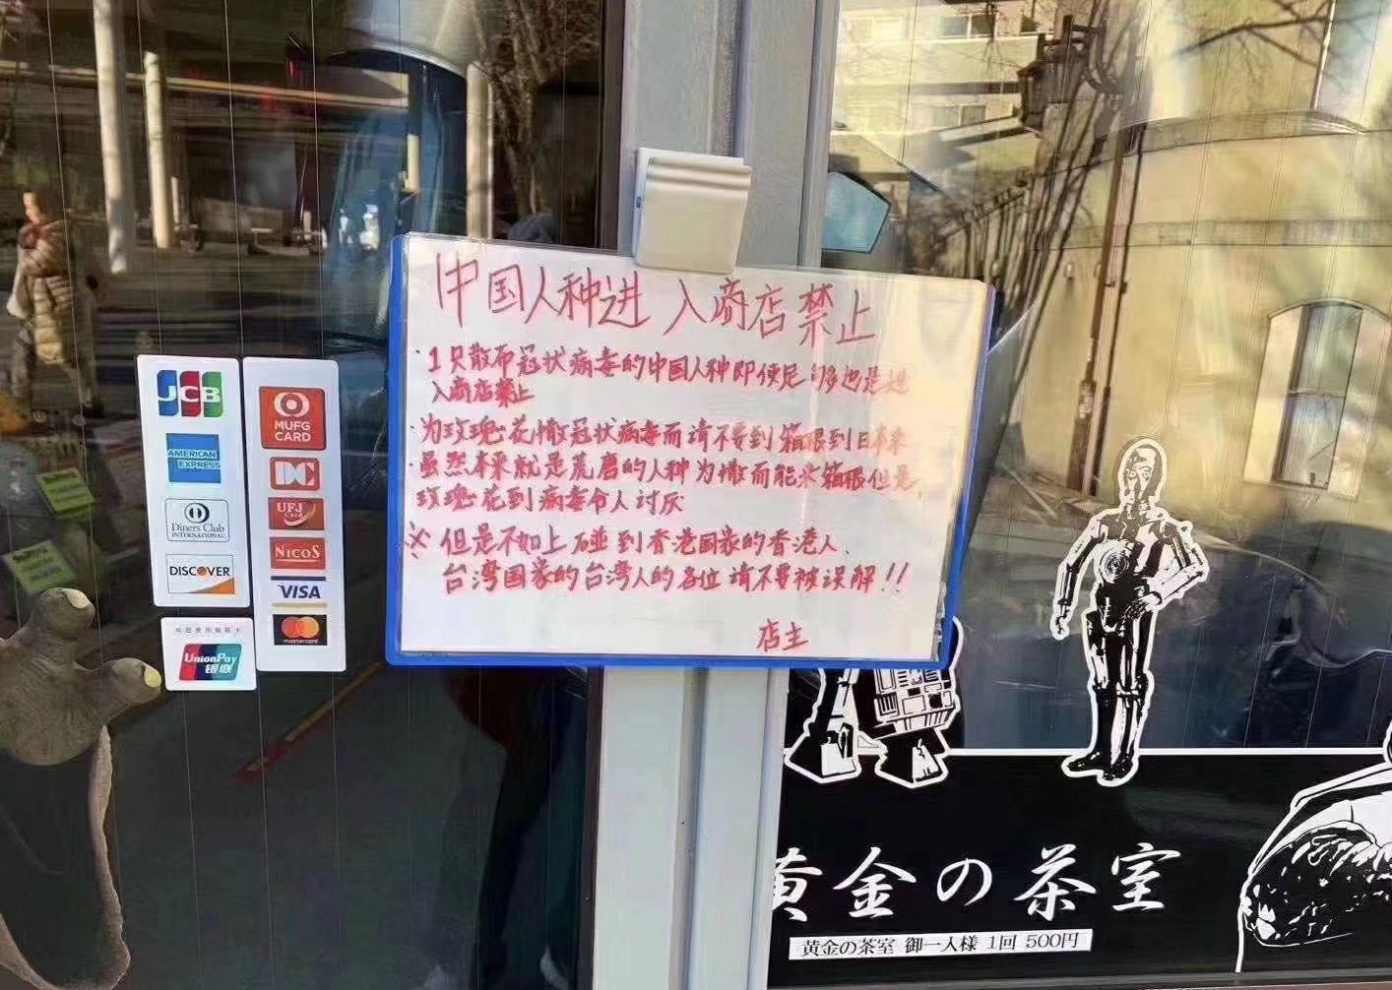 中国人种进 入商店禁止
·1只散布冠状病毒的中国人种即使足够也是进
入商店禁止
·为玫瑰花撒冠状病毒而请不要到箱根到日本来
·虽然本来就是荒磨的人种为撒而能米箱根但是
玫瑰花到病毒令人讨厌
※但是不如上碰到香港国家的香港人、
台湾国家的台湾人的各位请不要被误解!!
店主
JCB
AMERICAN EXPRESS
Diners Club
INTERNATIONAL
DISCOVER
UnionPay
银联
MUFG
CARD
DC
UFJ
Card
NICOS
VISA
mastercard
黄金の茶室
黄金の茶室 御一人様 1回 500円